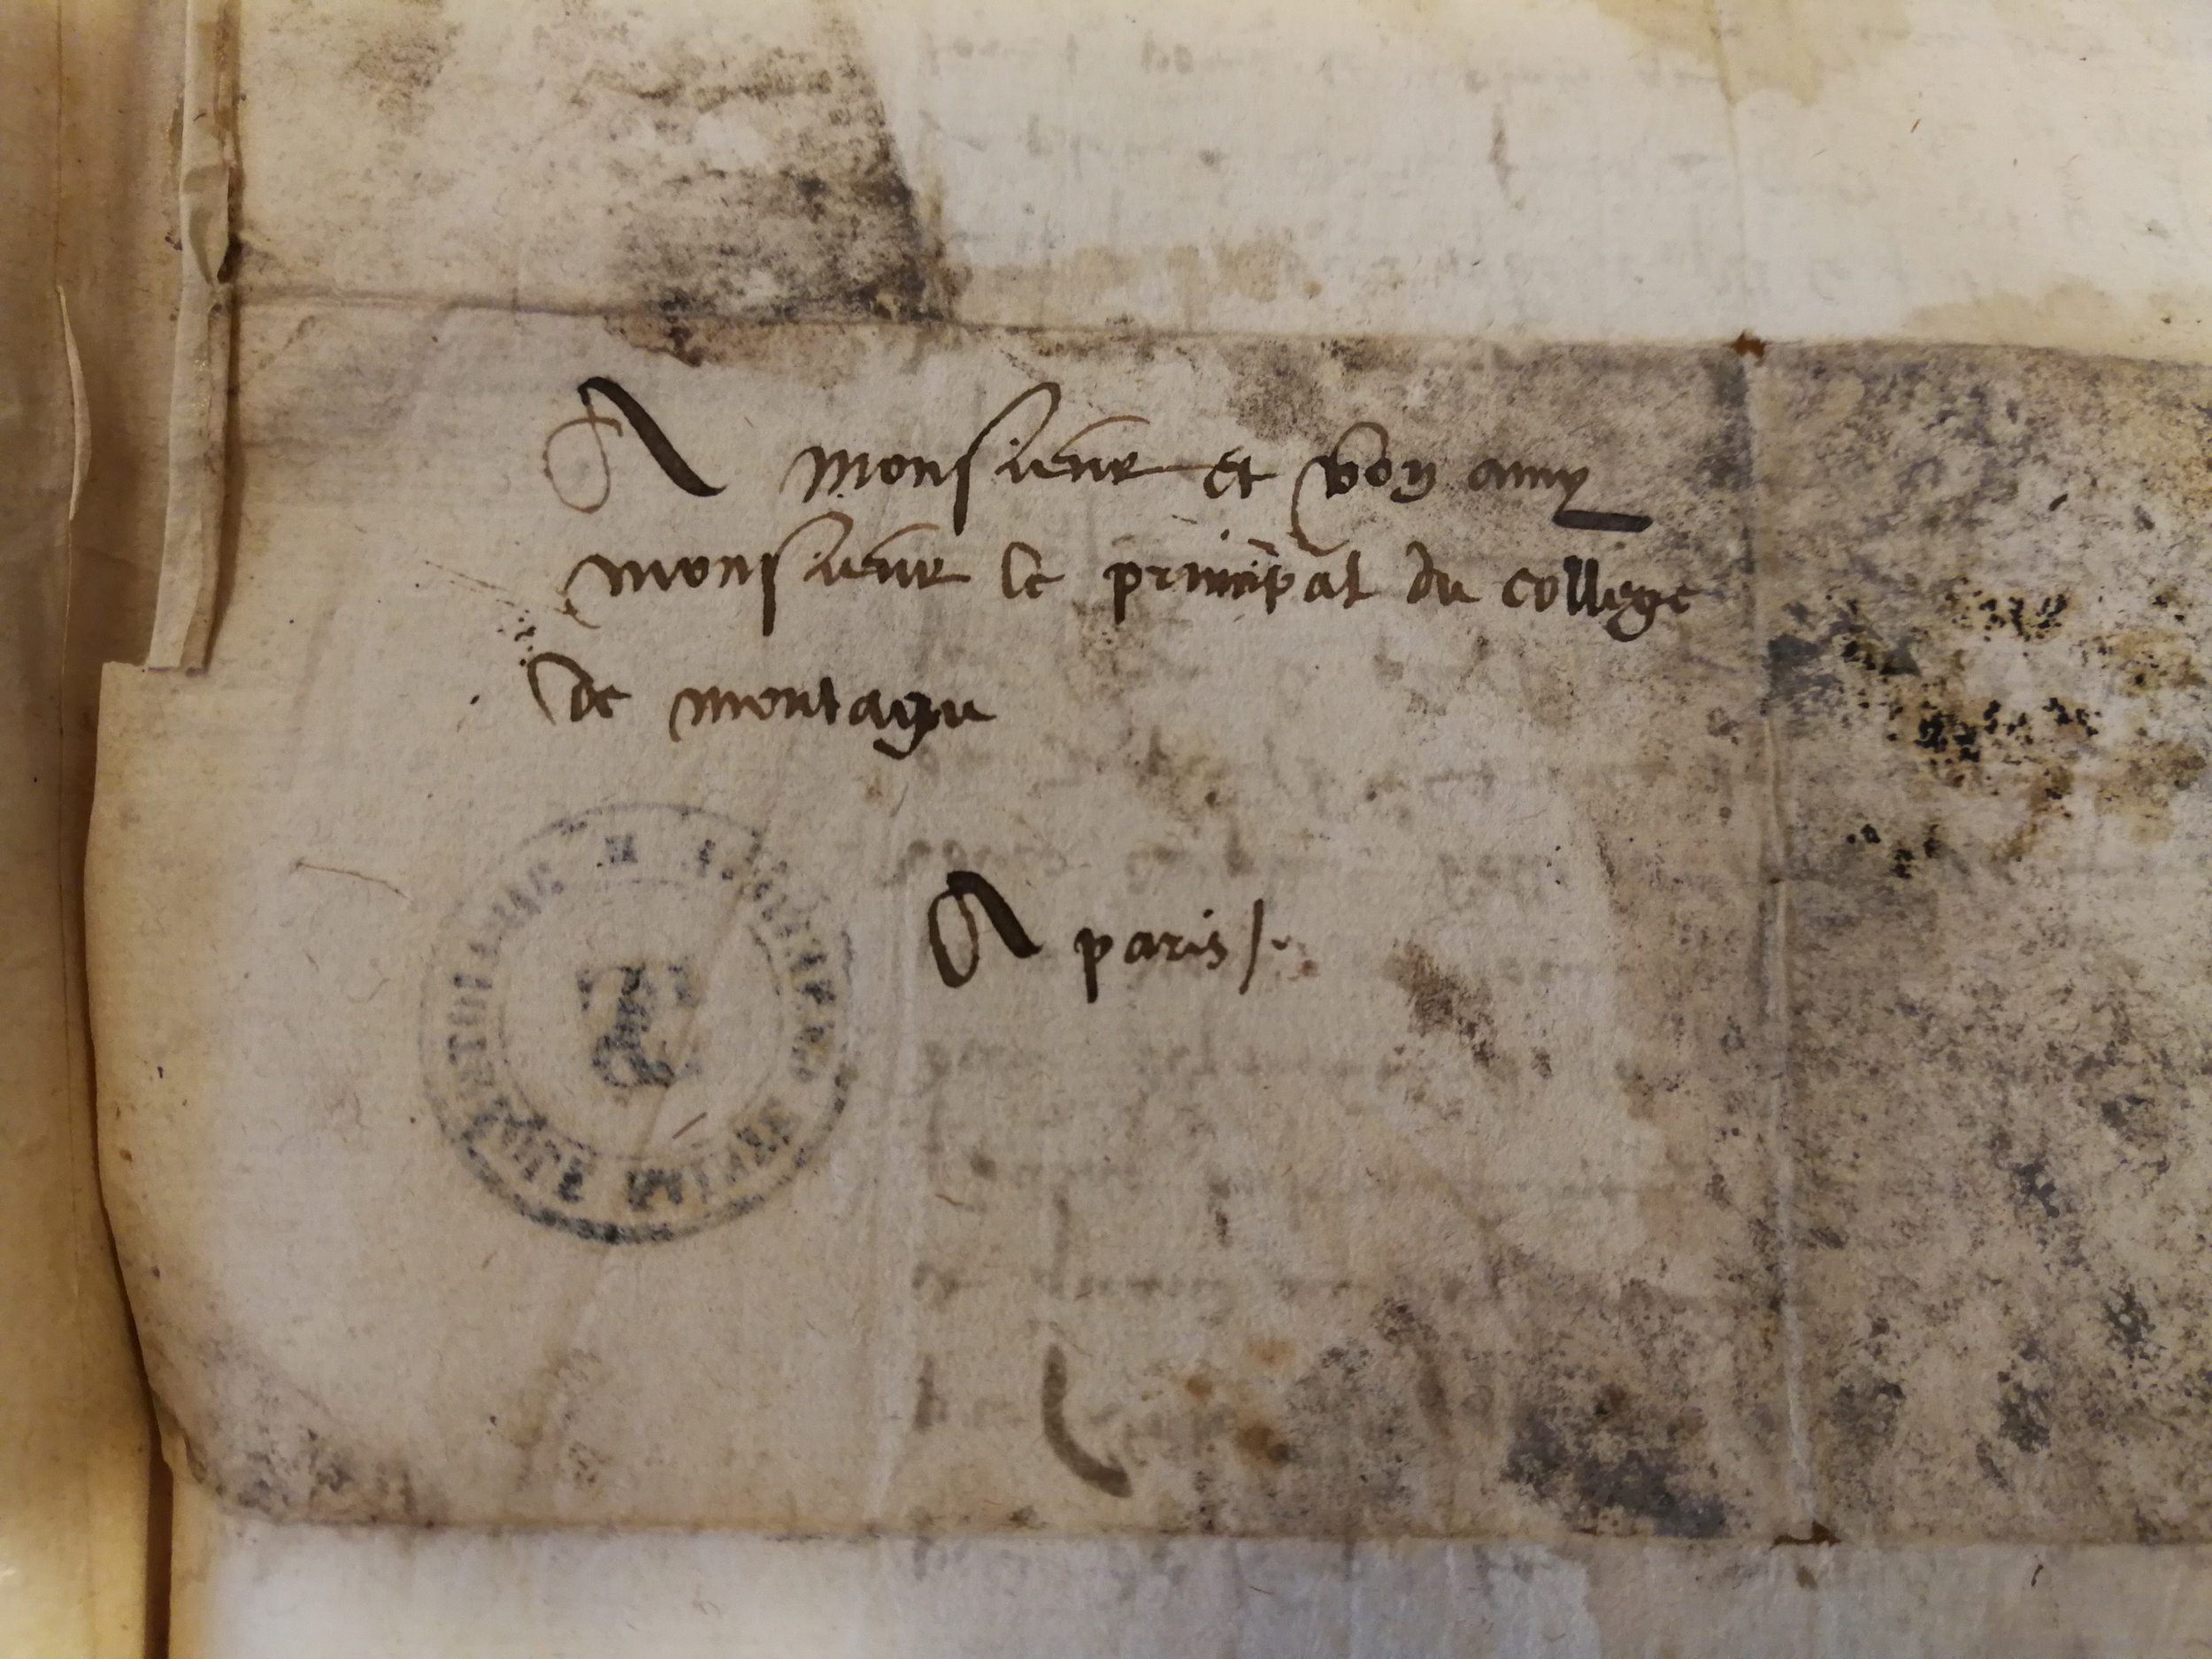 A monsieur et bon amy
monsieur le principal du college
de montagu
A paris /.